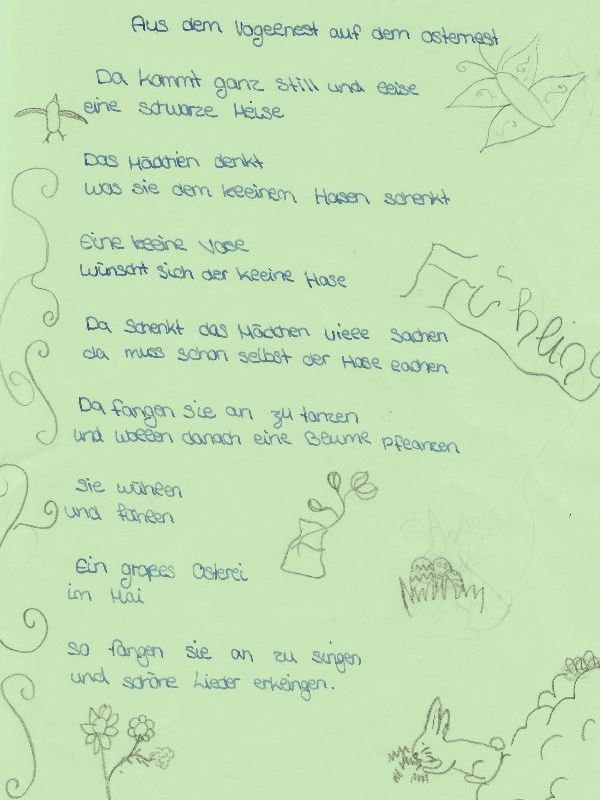 Aus dem Vogelnest auf dem osternest
Da kommt ganz still und leise
eine schwarze Meise
Das Mädchen denkt
was sie dem kleinem Hasen schenkt
Eine kleine Vase
wünscht sich der kleine Hase
Frühling
Da schenkt das Mädchen viele sachen
da muss schon selbst der Hase lachen
Da fangen sie an zu tanzen
und wollen danach eine Blume pflanzen
Sie wühlen
und fühlen
Ein großes Osterei
im Mai
so fangen sie an zu singen
und schöne Lieder erklingen.